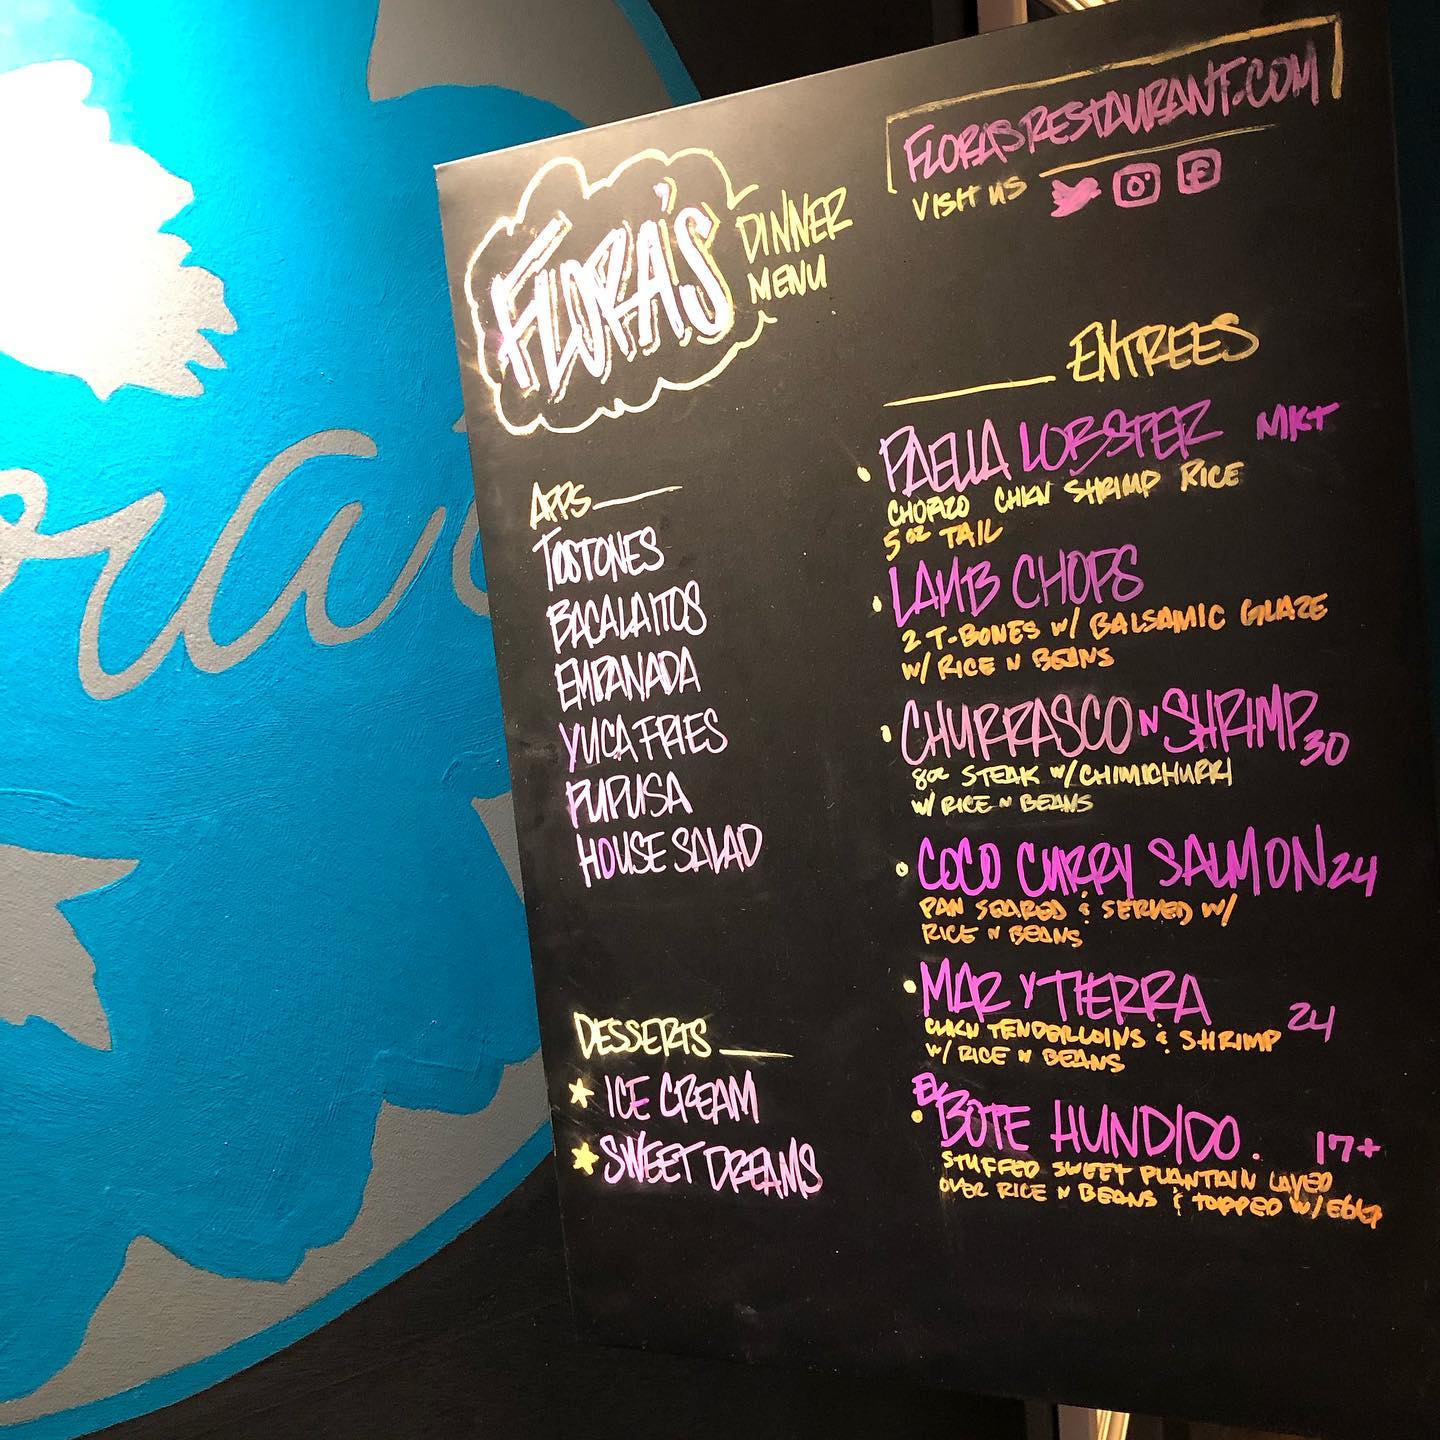 FLORA'S
DINNER
MENU
FLORASRESTAURANT.COM
VISIT US
APPS
TOSTONES
BACALAITOS
EMPANADA
YUCA FRIES
PUPUSA
HOUSE SALAD
DESSERTS
ICE CREAM
SWEET DREAMS
ENTREES
PAELLA LOBSTER MKT
CHORIZO CHKN SHRIMP RICE
5 OZ TAIL
LAMB CHOPS
2 T-BONES W/ BALSAMIC GLAZE
W/ RICE N BEANS
CHURRASCO N SHRIMP 30
8OZ STEAK W/ CHIMICHURRI
W/ RICE N BEANS
COCO CURRY SALMON 24
PAN SEARED & SERVED W/
RICE N BEANS
MAR Y TIERRA 24
CHKN TENDERLOINS & SHRIMP
W/ RICE N BEANS
EL BOTE HUNDIDO. 17+
STUFFED SWEET PLANTAIN LAYED
OVER RICE N BEANS & TOPPED W/ EGG